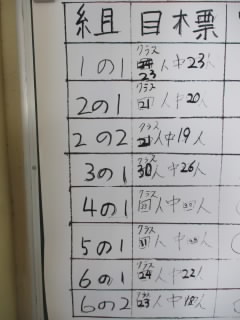 組 目標
1の1 クラス 23人中23人
2の1 クラス 21人中20人
2の2 クラス 21人中19人
3の1 クラス 30人中26人
4の1 クラス 人中 人
5の1 クラス 人中 人
6の1 クラス 24人中22人
6の2 クラス 23人中18人